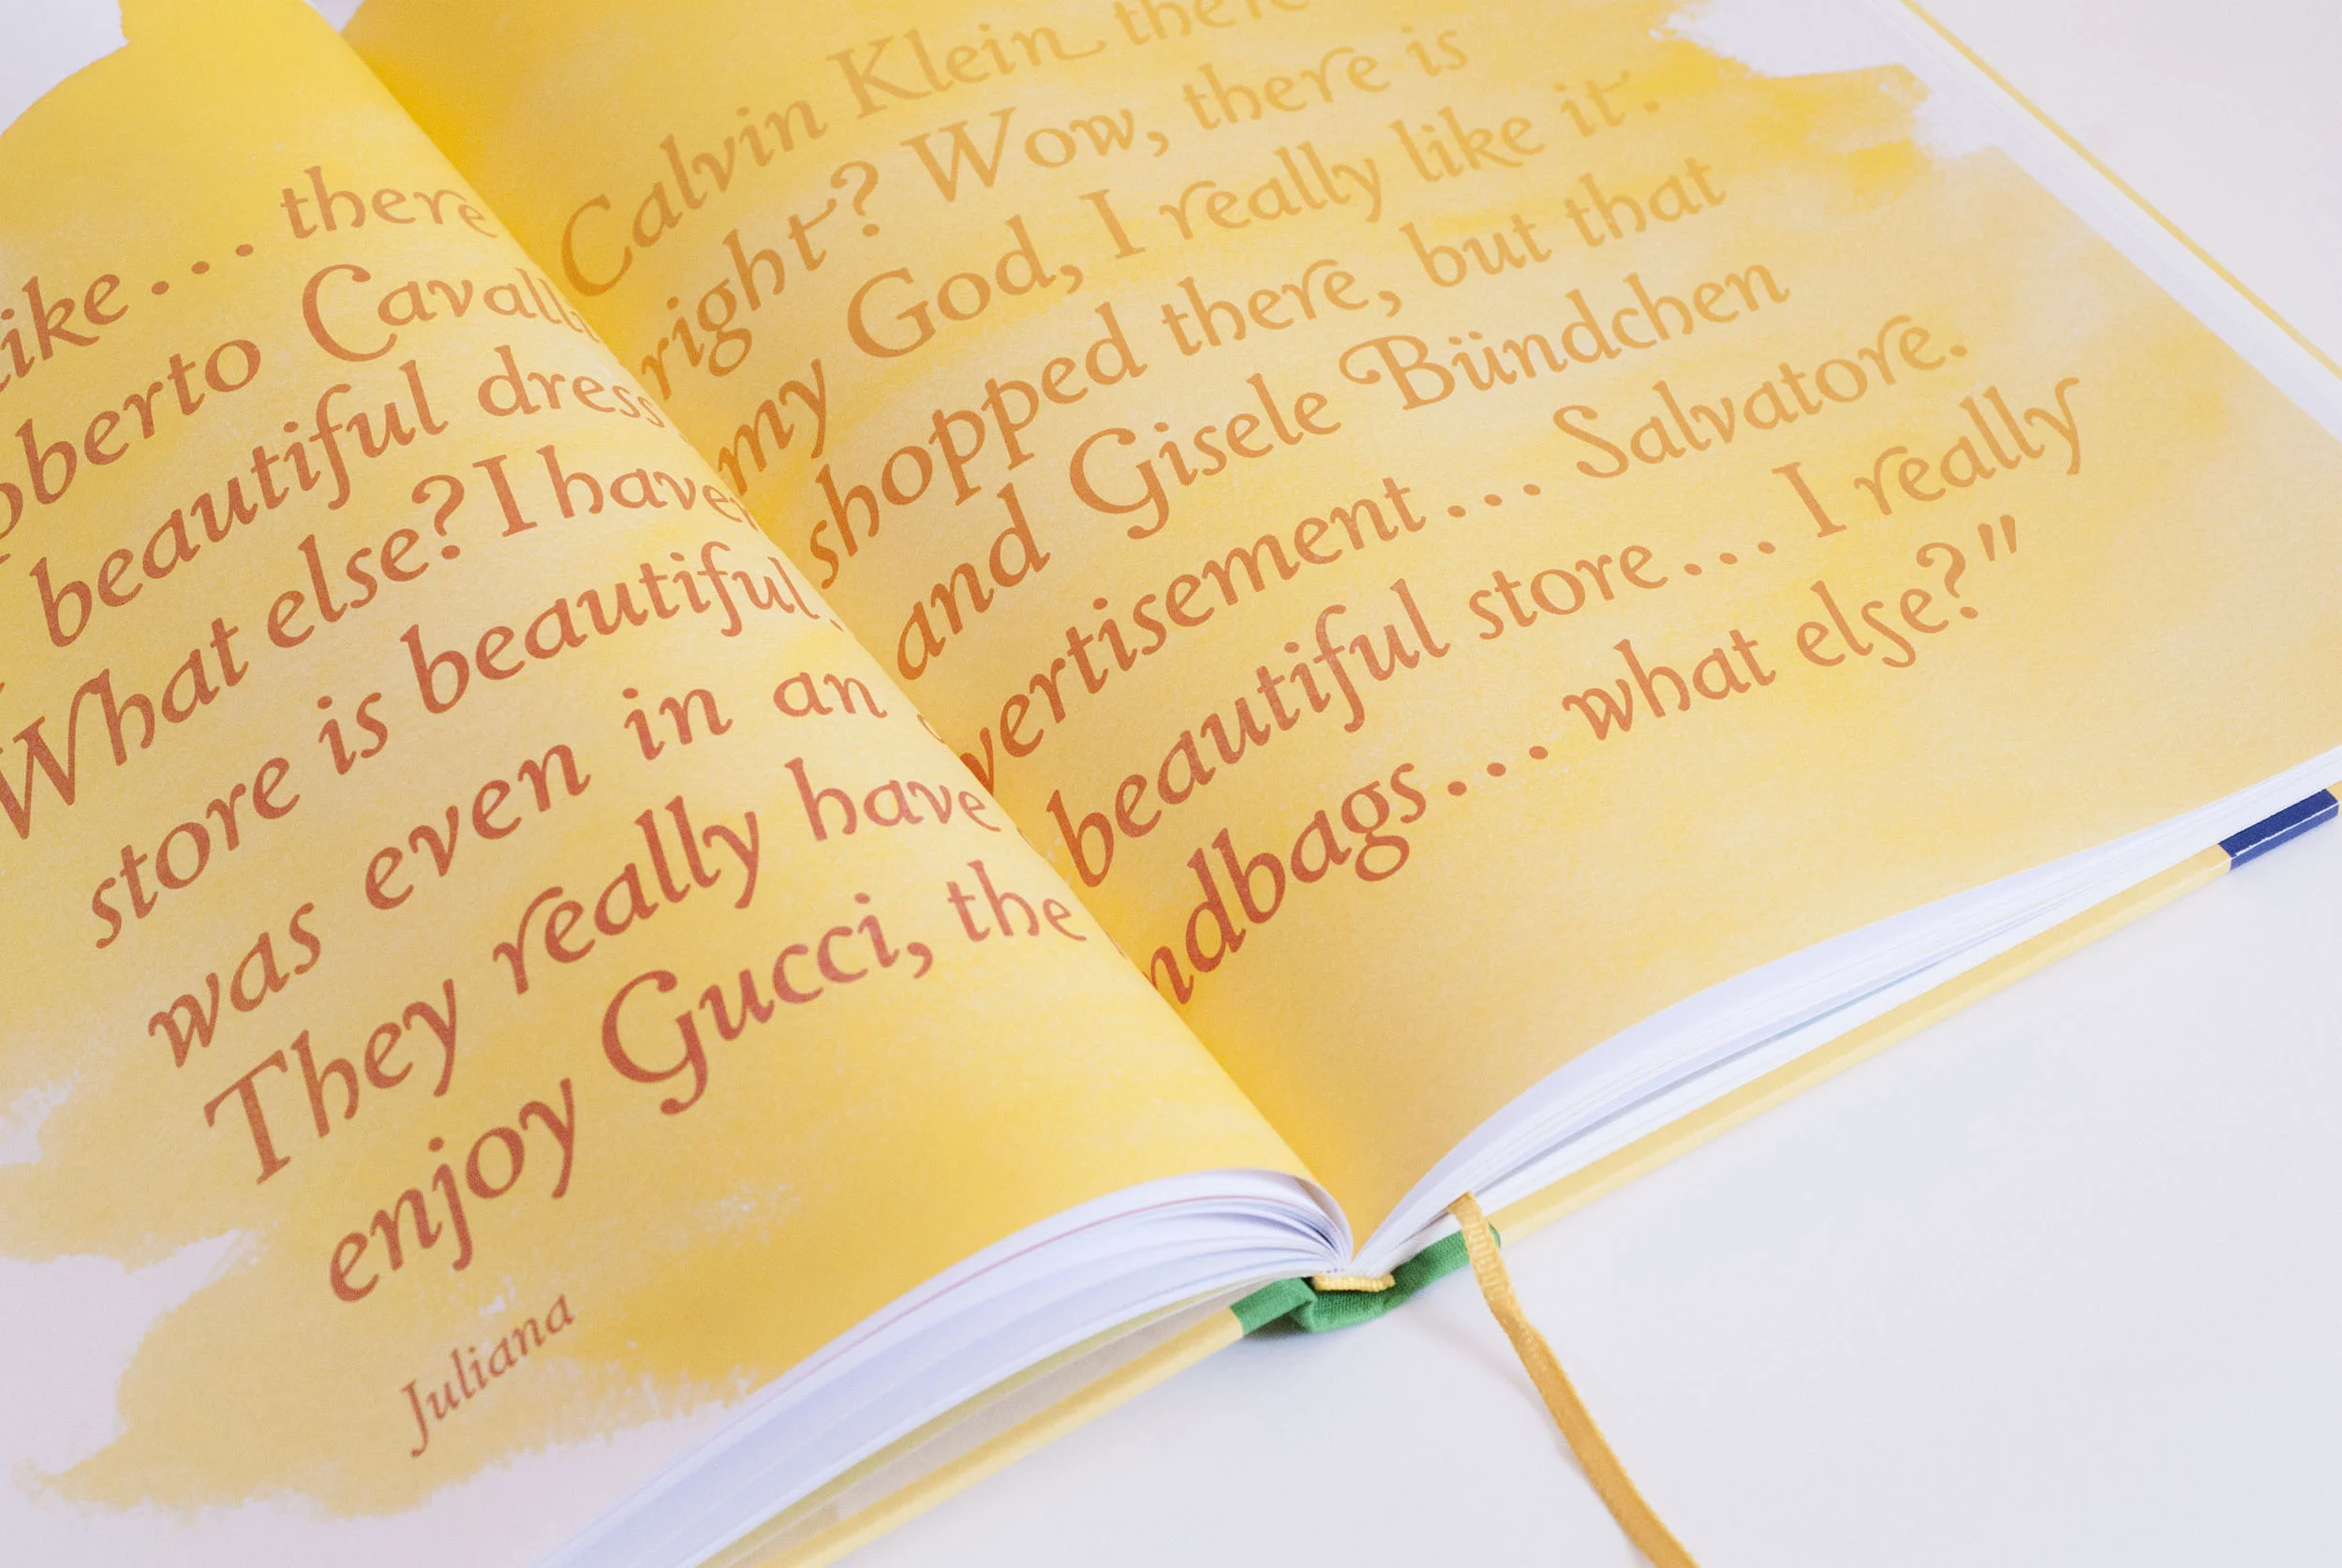 ike... there Calvin Klein there
oberto Cavalli right? Wow, there is
beautiful dress my God, I really like it.
What else? I haven shopped there, but that
store is beautiful, and Gisele Bündchen
was even in an vertisement... Salvatore.
They really have beautiful store... I really
enjoy Gucci, the ndbags... what else?"
Juliana